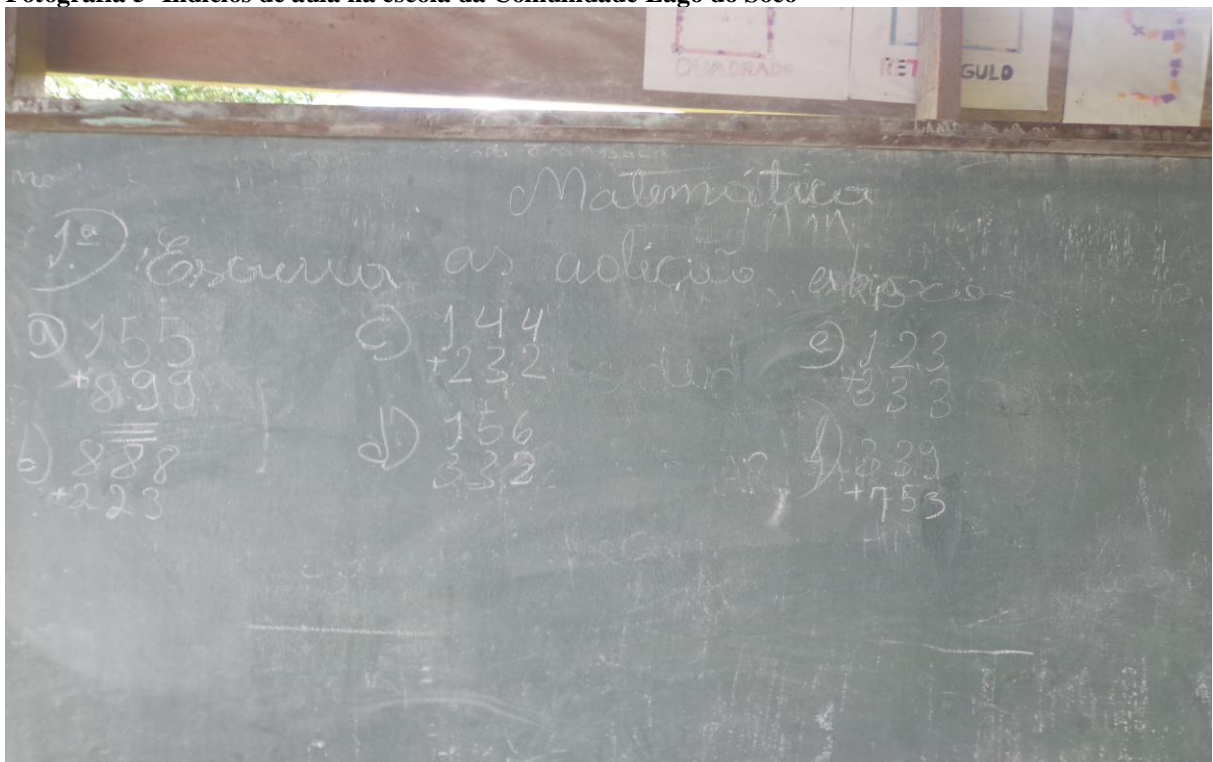 Fotografia 5- Indícios de aula na escola da Comunidade Lago do Socó
QUADRADO
RET GULO
Matemática
1ª) Escreva as adição abaixo
a) 155
+899
b) 888
+223
c) 144
+232
d) 156
332
e) 123
+333
f) 339
+753